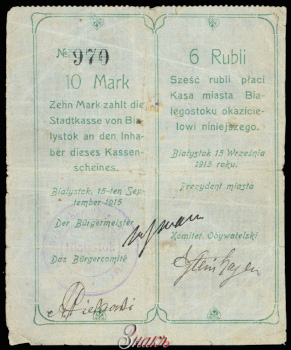 № 970
10 Mark
Zehn Mark zahlt die
Stadtkasse von Bia-
lystok an den Inha-
ber dieses Kassen-
scheines.
Bialystok, 15-ten Sep-
tember 1915
Der Bürgermeister
Das Bürgercomité
6 Rubli
Sześć rubli płaci
Kasa miasta Bia-
łegostoku okazicie-
lowi niniejszego.
Białystok 15 Września
1915 roku.
Prezydent miasta
Komitet Obywatelski
Знакъ